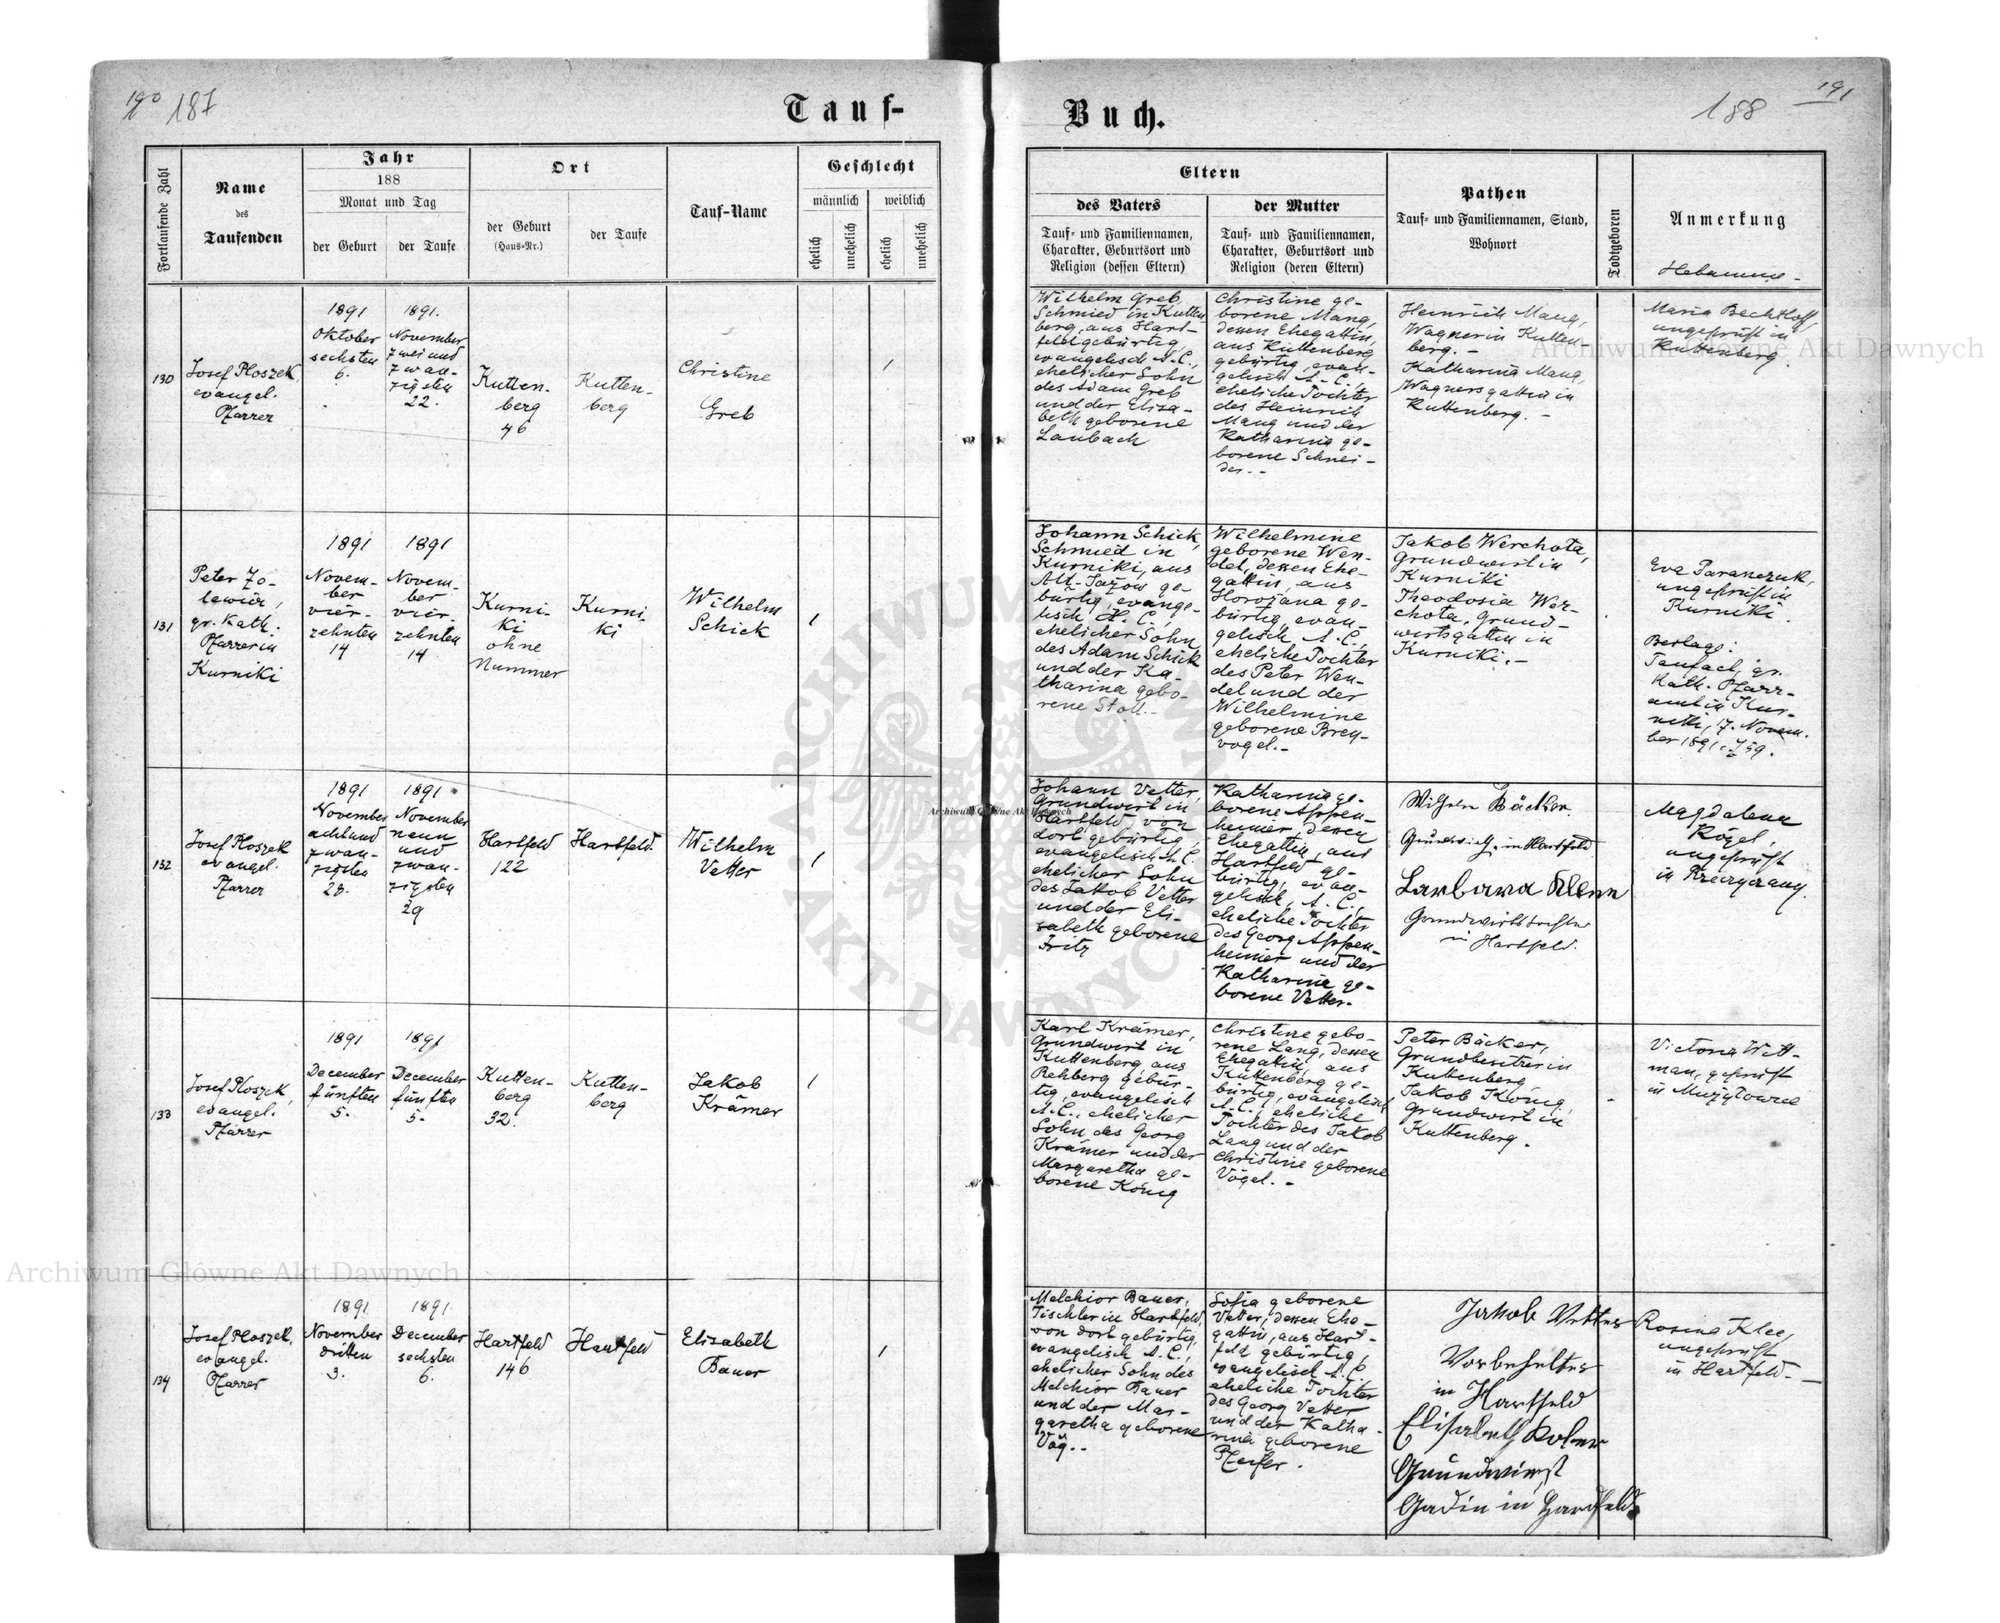 190 187
Tauf-
Buch.
188 191
Fortlaufende Zahl
Name
des
Taufenden
Jahr
188
Monat und Tag
der Geburt
der Taufe
Ort
der Geburt
(Haus-Nr.)
der Taufe
Tauf-Name
Geschlecht
männlich
weiblich
ehelich
unehelich
ehelich
unehelich
Eltern
des Vaters
Tauf- und Familiennamen,
Charakter, Geburtsort und
Religion (dessen Eltern)
der Mutter
Tauf- und Familiennamen,
Charakter, Geburtsort und
Religion (deren Eltern)
Pathen
Tauf- und Familiennamen, Stand,
Wohnort
Todtgeboren
Anmerkung
Hebamme -
130
Josef Ploszek,
evangel.
Pfarrer
1891
Oktober
sechsten
6.
1891.
November
zwei und
zwan-
zigsten
22.
Kutten-
berg
46
Kutten-
berg
Christine
Greb
1
Wilhelm Greb,
Schmied in Kutten
berg, aus Hart-
feld gebürtig,
evangelisch A.C.,
ehelicher Sohn
des Adam Greb
und der Elisa-
beth geborene
Laubach
Christine ge-
borene Mang,
dessen Ehegattin,
aus Kuttenberg
gebürtig, evan-
gelisch A.C.,
eheliche Tochter
des Heinrich
Mang und der
Katharina ge-
borene Schnei-
der.-
Heinrich Mang,
Wagner in Kutten-
berg.-
Katharina Mang,
Wagnersgattin in
Kuttenberg.-
Maria Bechtloff,
ungeprüft in
Kuttenberg
131
Peter Zo-
lewicz,
gr. kath.
Pfarrer in
Kurniki
1891
Novem-
ber
vier-
zehnten
14
1891
Novem-
ber
vier-
zehnten
14.
Kurni-
ki
ohne
Nummer
Kurni-
ki
Wilhelm
Schick
1
Johann Schick,
Schmied in
Kurniki, aus
Alt-Jazow ge-
bürtig, evange-
lisch, H.C.,
ehelicher Sohn
des Adam Schick
und der Ka-
tharina gebo-
rene Stoll.-
Wilhelmine
geborene Wen-
del, dessen Ehe-
gattin, aus
Horozana ge-
bürtig, evan-
gelisch, A.C.,
eheliche Tochter
des Peter Wen-
del und der
Wilhelmine
geborene Brey-
vogel.-
Jakob Werchota,
Grundwirt in
Kurniki
Theodosia Wer-
chota, Grund-
wirtsgattin in
Kurniki.-
Eva Paranczuk,
ungeprüft in
Kurniki.
Beilage:
Taufact, gr.
kath. Pfarr-
amt in Kur-
niki, 17. Novem.
ber 1891.
132
Josef Ploszek
evangel.
Pfarrer
1891
November
acht und
zwan-
zigsten
28.
1891
November
neun
und
zwan-
zigsten
29
Hartfeld
122
Hartfeld.
Wilhelm
Vetter
1
Johann Vetter,
Grundwirt in
Hartfeld von
dort gebürtig,
evangelisch A.C.
ehelicher Sohn
des Jakob Vetter
und der Eli-
sabeth geborene
Fritz
Katharina ge-
borene Appen-
heimer, dessen
Ehegattin, aus
Hartfeld ge-
bürtig, evan-
gelisch, A.C.,
eheliche Tochter
des Georg Appen-
heimer und der
Katharina ge-
borene Vetter.
Wilhelm Bäcker.
Grundwirth in Hartfeld
Barbara Klein
Grundwirthstochter
in Hartfeld.
Magdalena
Kögel,
ungeprüft
in
133
Josef Ploszek,
evangel.
Pfarrer
1891
December
fünften
5.
1891
December
fünften
5.
Kutten-
berg
32.
Kutten-
berg
Jakob
Krämer
1
Karl Krämer,
Grundwirt in
Kuttenberg, aus
Rehberg gebür-
tig, evangelisch
A.C., ehelicher
Sohn des Georg
Krämer und der
Margaretha ge-
borene König
Christine gebo-
rene Lang, dessen
Ehegattin, aus
Kuttenberg ge-
bürtig, evangelisch
A.C., eheliche
Tochter des Jakob
Lang und der
Christine geborene
Vögel.-
Peter Bäcker,
Grundbesitzer in
Kuttenberg
Jakob König,
Grundwirt in
Kuttenberg.
Victoria Witt-
man, geprüft
in Muzylowice
134
Josef Ploszek,
evangel.
Pfarrer
1891
November
dritten
3.
1891.
December
sechsten
6.
Hartfeld
146
Hartfeld
Elisabeth
Bauer
1
Melchior Bauer,
Tischler in Hartfeld,
von dort gebürtig,
evangelisch A.C.,
ehelicher Sohn des
Melchior Bauer
und der Mar-
garetha geborene
Väg..
Sofia geborene
Vetter, dessen Ehe-
gattin, aus Hart-
feld gebürtig,
evangelisch A.C.
eheliche Tochter
des Georg Vetter
und der Katha-
rina geborene
Pfeifer.
Jakob Vetter
Vorbehelter
in Hartfeld
Elisabeth
Grundwirst
Gadin in Hardfeld.
Rosina Klee,
ungeprüft
in Hartfeld.-
Archiwum Główne Akt Dawnych
Archiwum Główne Akt Dawnych
Archiwum Główne Akt Dawnych
ARCHIWUM GŁÓWNE AKT DAWNYCH